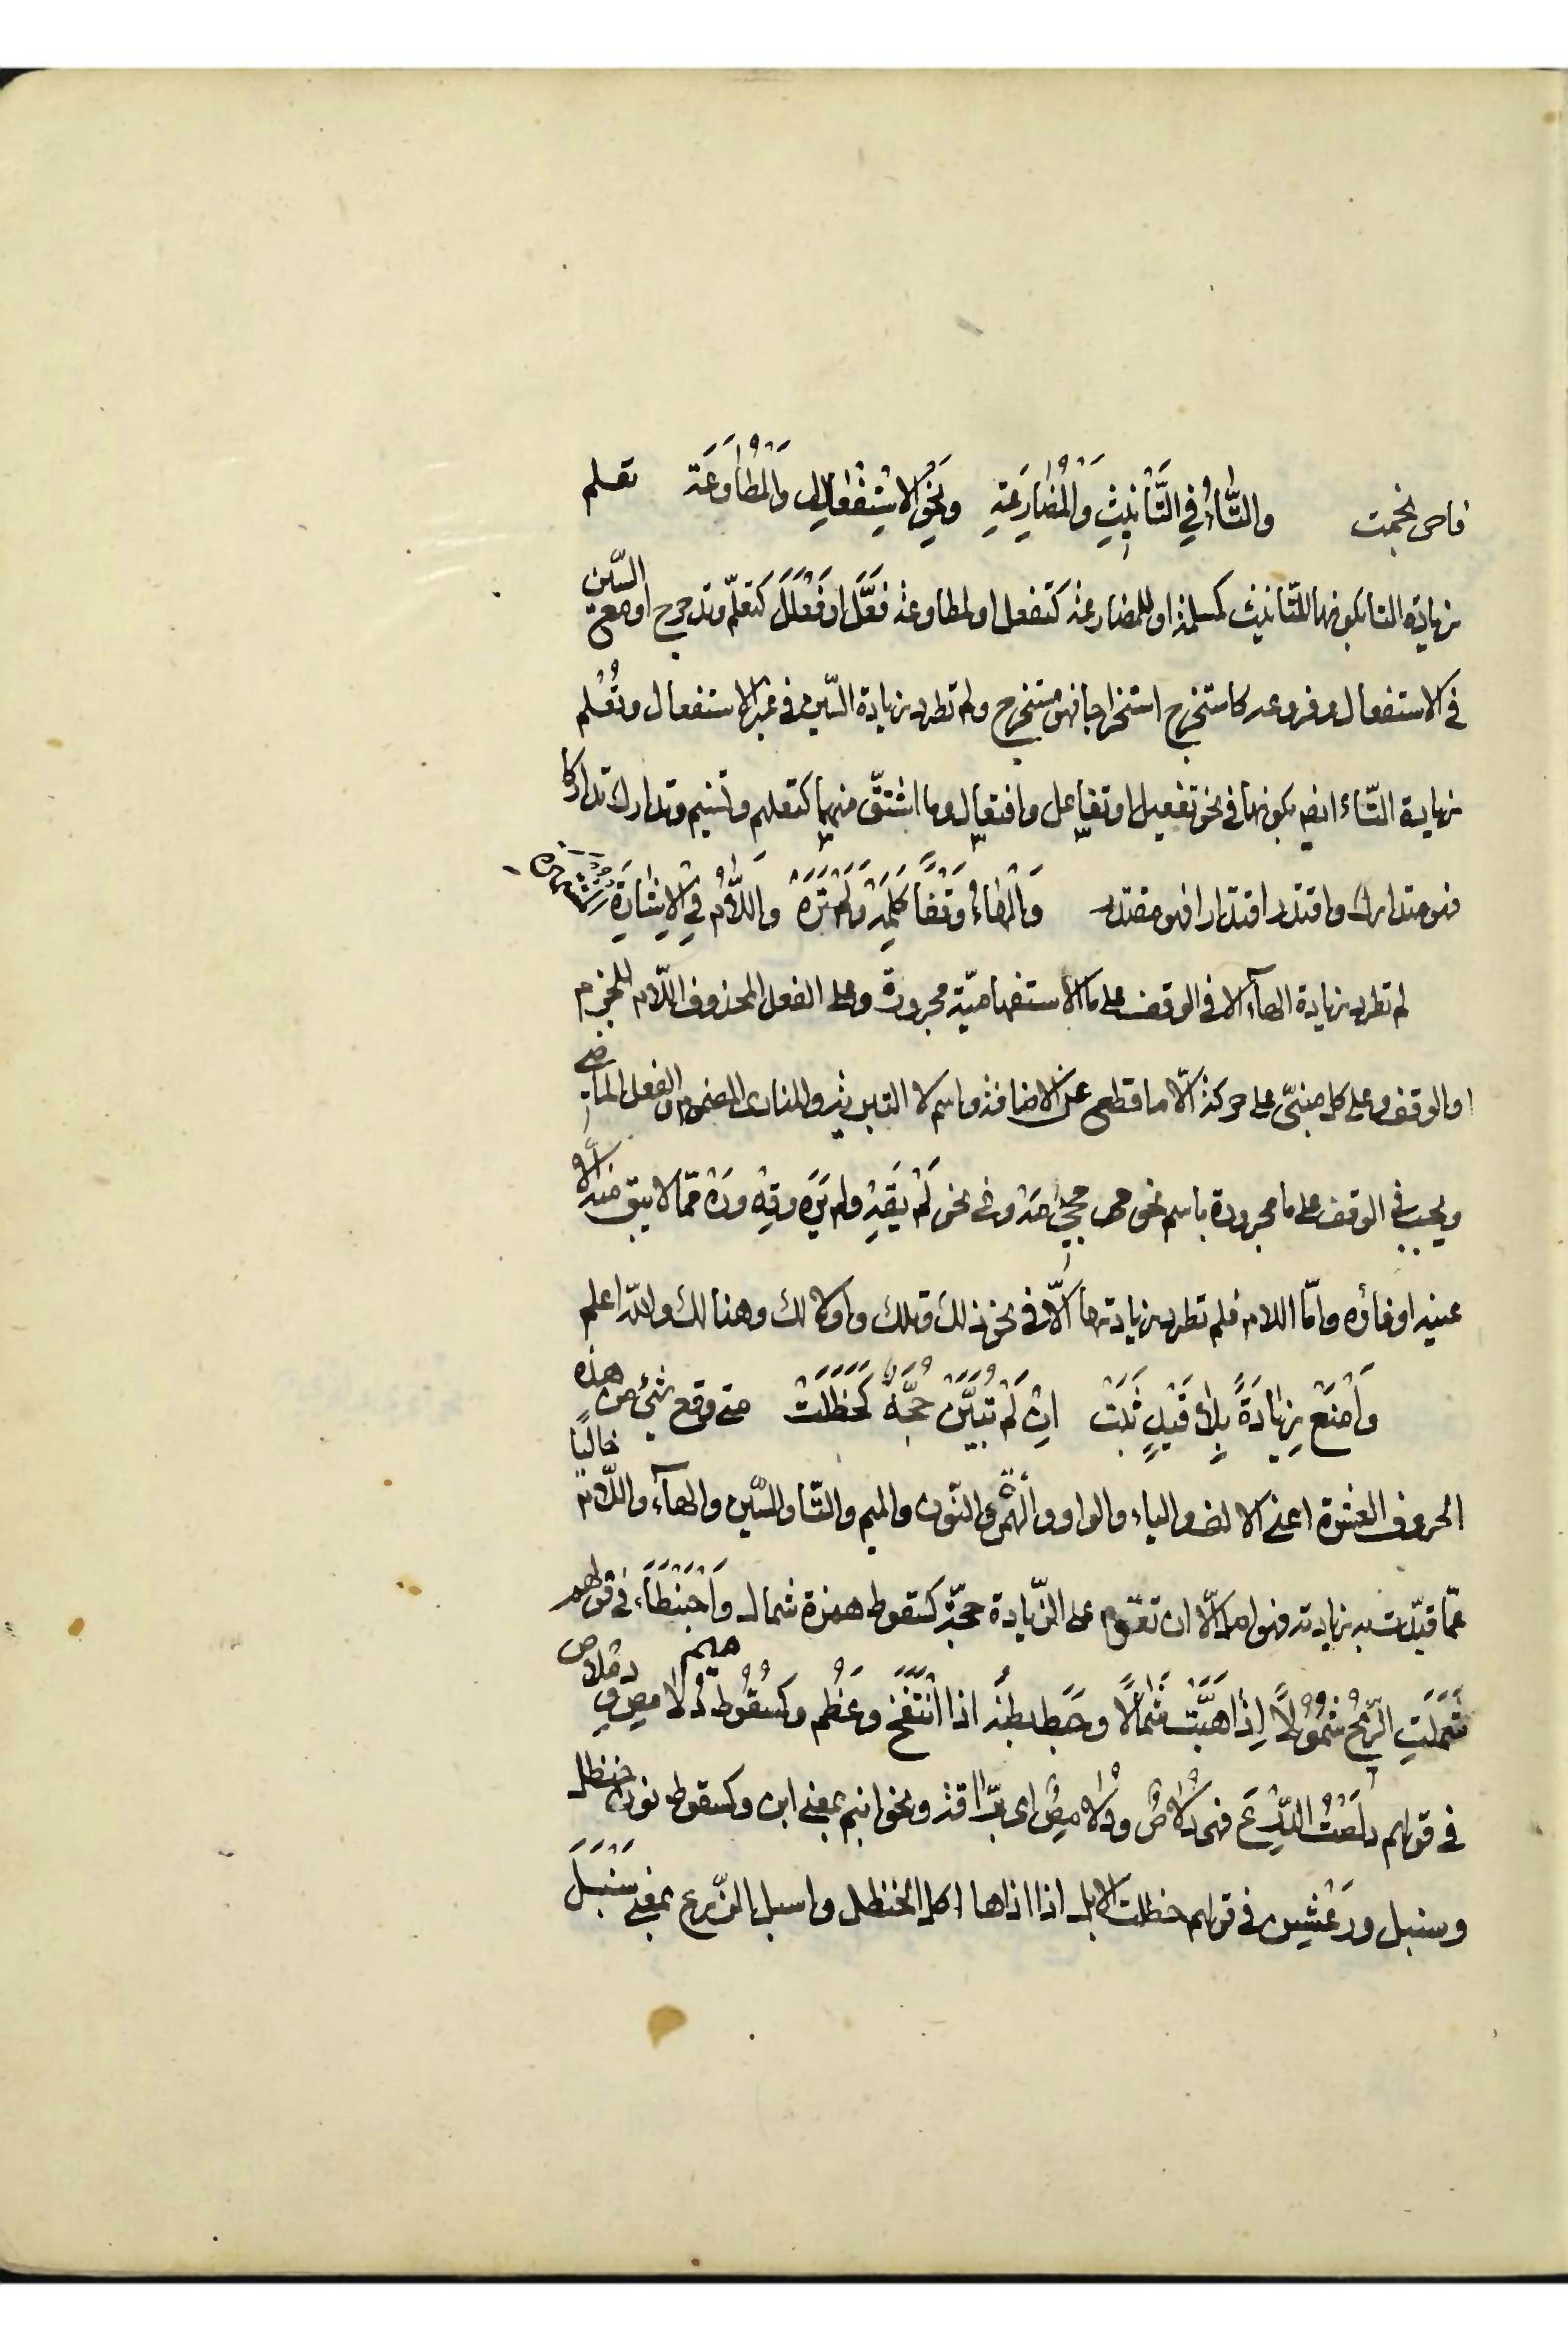 فاحرنجمت والتَّاءُ فِي التَّأنِيثِ وَالْمُضَارِعَةِ وَنَحْوِ الاسْتِفْعَالِ وَالْمُطَاوَعَة تعلم
زيادة التا بكونها للتانيث كمسلمة او للمضارعة كتفعل او لمطاوعة فَعَّلَ او فَعْلَلَ كتعلّم وتدحرج او مع السّين
فى الاستفعال وفروعه كاستخرج استخراجا فهو مستخرج ولم تطرد زيادة السّين فى غير الاستفعال وتُعْلم
زيادة التّاء ايضا بكونها فى نحو تفعيل او تفاعل وافتعال وما اشتقّ منهما كتعليم وتسنيم وتدارك تداركا
فهو متدارك واقتدر اقتدارا فهو مقتدر وَالْهَاءُ وَقْفًا كَلِمَهْ وَلَمْ تَرَهْ وَاللَّامُ فِي الْاِشَارَةِ المشتهرة
لم تطرد زيادة الهآء الا فى الوقف على ما الاستفهاميّة مجرورة وعلى الفعل المحذوف اللّام للجزم
او الوقف وعلى كل مبنىّ على حركة الّا ما قطع عن الاضافة واسم لا التبرية والمنادى المضموم والفعل الماضى
ويجب فى الوقف على ما مجرورة باسم نحو مجىء مه وفى نحو لَمْ يَقِهِ ولم يَرَهْ وقِهْ ورَهْ ممّا لا يبق منه الا
عينه او فاؤه وامّا اللام فلم تطرد زيادتها الّا فى نحو ذلك وتلك واولالك وهنالك واللّه اعلم
وَامْنَعْ زِيَادَةً بِلَا قَيْدٍ ثَبَتْ اِنْ لَمْ تُبَيَّنْ حُجَّةٌ كَحَظَلَتْ متى وقع شئ من هذه
الحروف العشرة اعنى الالف والياء والواو والهمزة والنّون والميم والتّا والسّين والهآء واللّام خاليًا
عمّا قيّدت به زيادته فهو اصل الّا ان تقوم على الزّيادة حجّة كسقوط همزة شمال وَاحْبَنْطَأَ فى قولهم
شَمَلَتِ الرِّيْحُ شُمُوْلًا اِذَا هَبَّتْ شَمَالًا وحَبَطَ بطنُه اذا انْتَفَخَ وعَظُم وكسُقُوط ميم دُلَامِصٍ ودلاص
فى قولهم دلَصَتْ الدِّرْعَ فهى دَلَاصٌ ودُلَامِصٌ اى برّاقة ونحو ابنم بمعنى ابن وكسقوط نون حنظل
وسنبل ورَعْشَن فى قولهم حظلت الابل اذا اذاها اكل الحنظل واسبل الزّرع بمعنى سَنْبَلَ